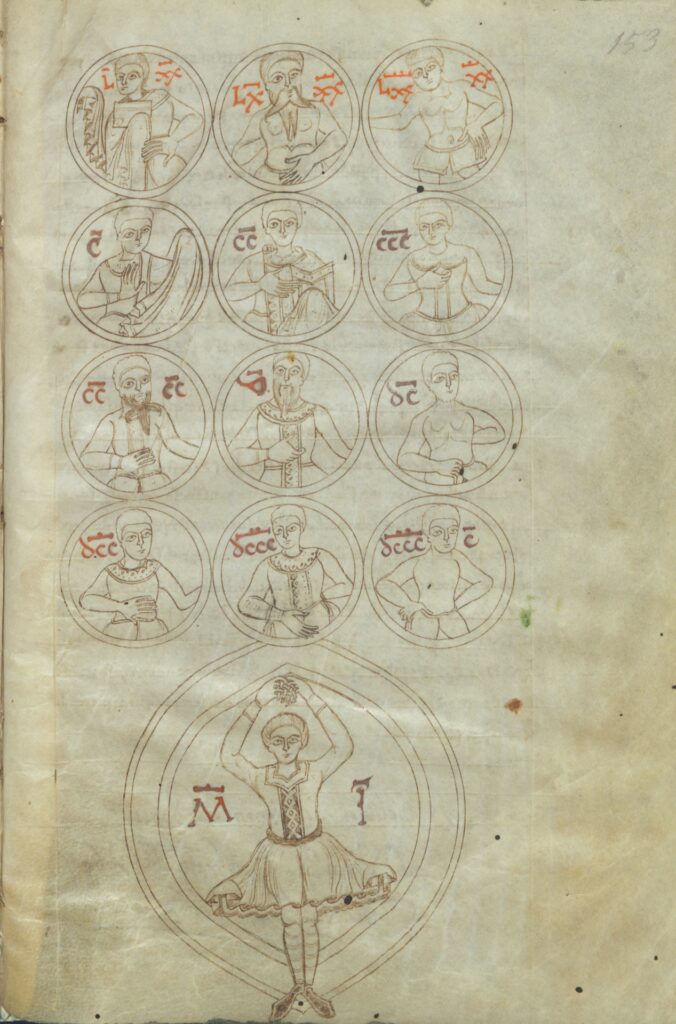 153
L̅ X̅X̅ L̅X̅ X̅X̅ L̅X̅X̅ X̅X̅
C̅ C̅C̅ C̅C̅C̅
C̅C̅ C̅C̅ D̅ D̅C̅
D̅C̅C̅ D̅C̅C̅C̅ D̅C̅C̅C̅ C̅
M̅ I̅